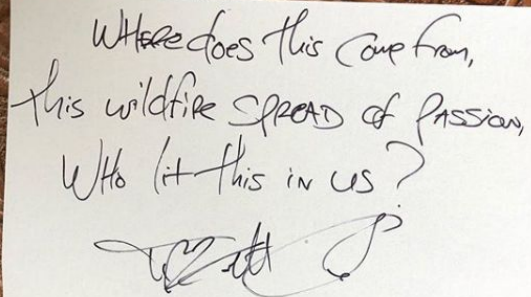 WHERE does this come from,
this wildfire SPREAD of PASSION,
WHO lit this in us?